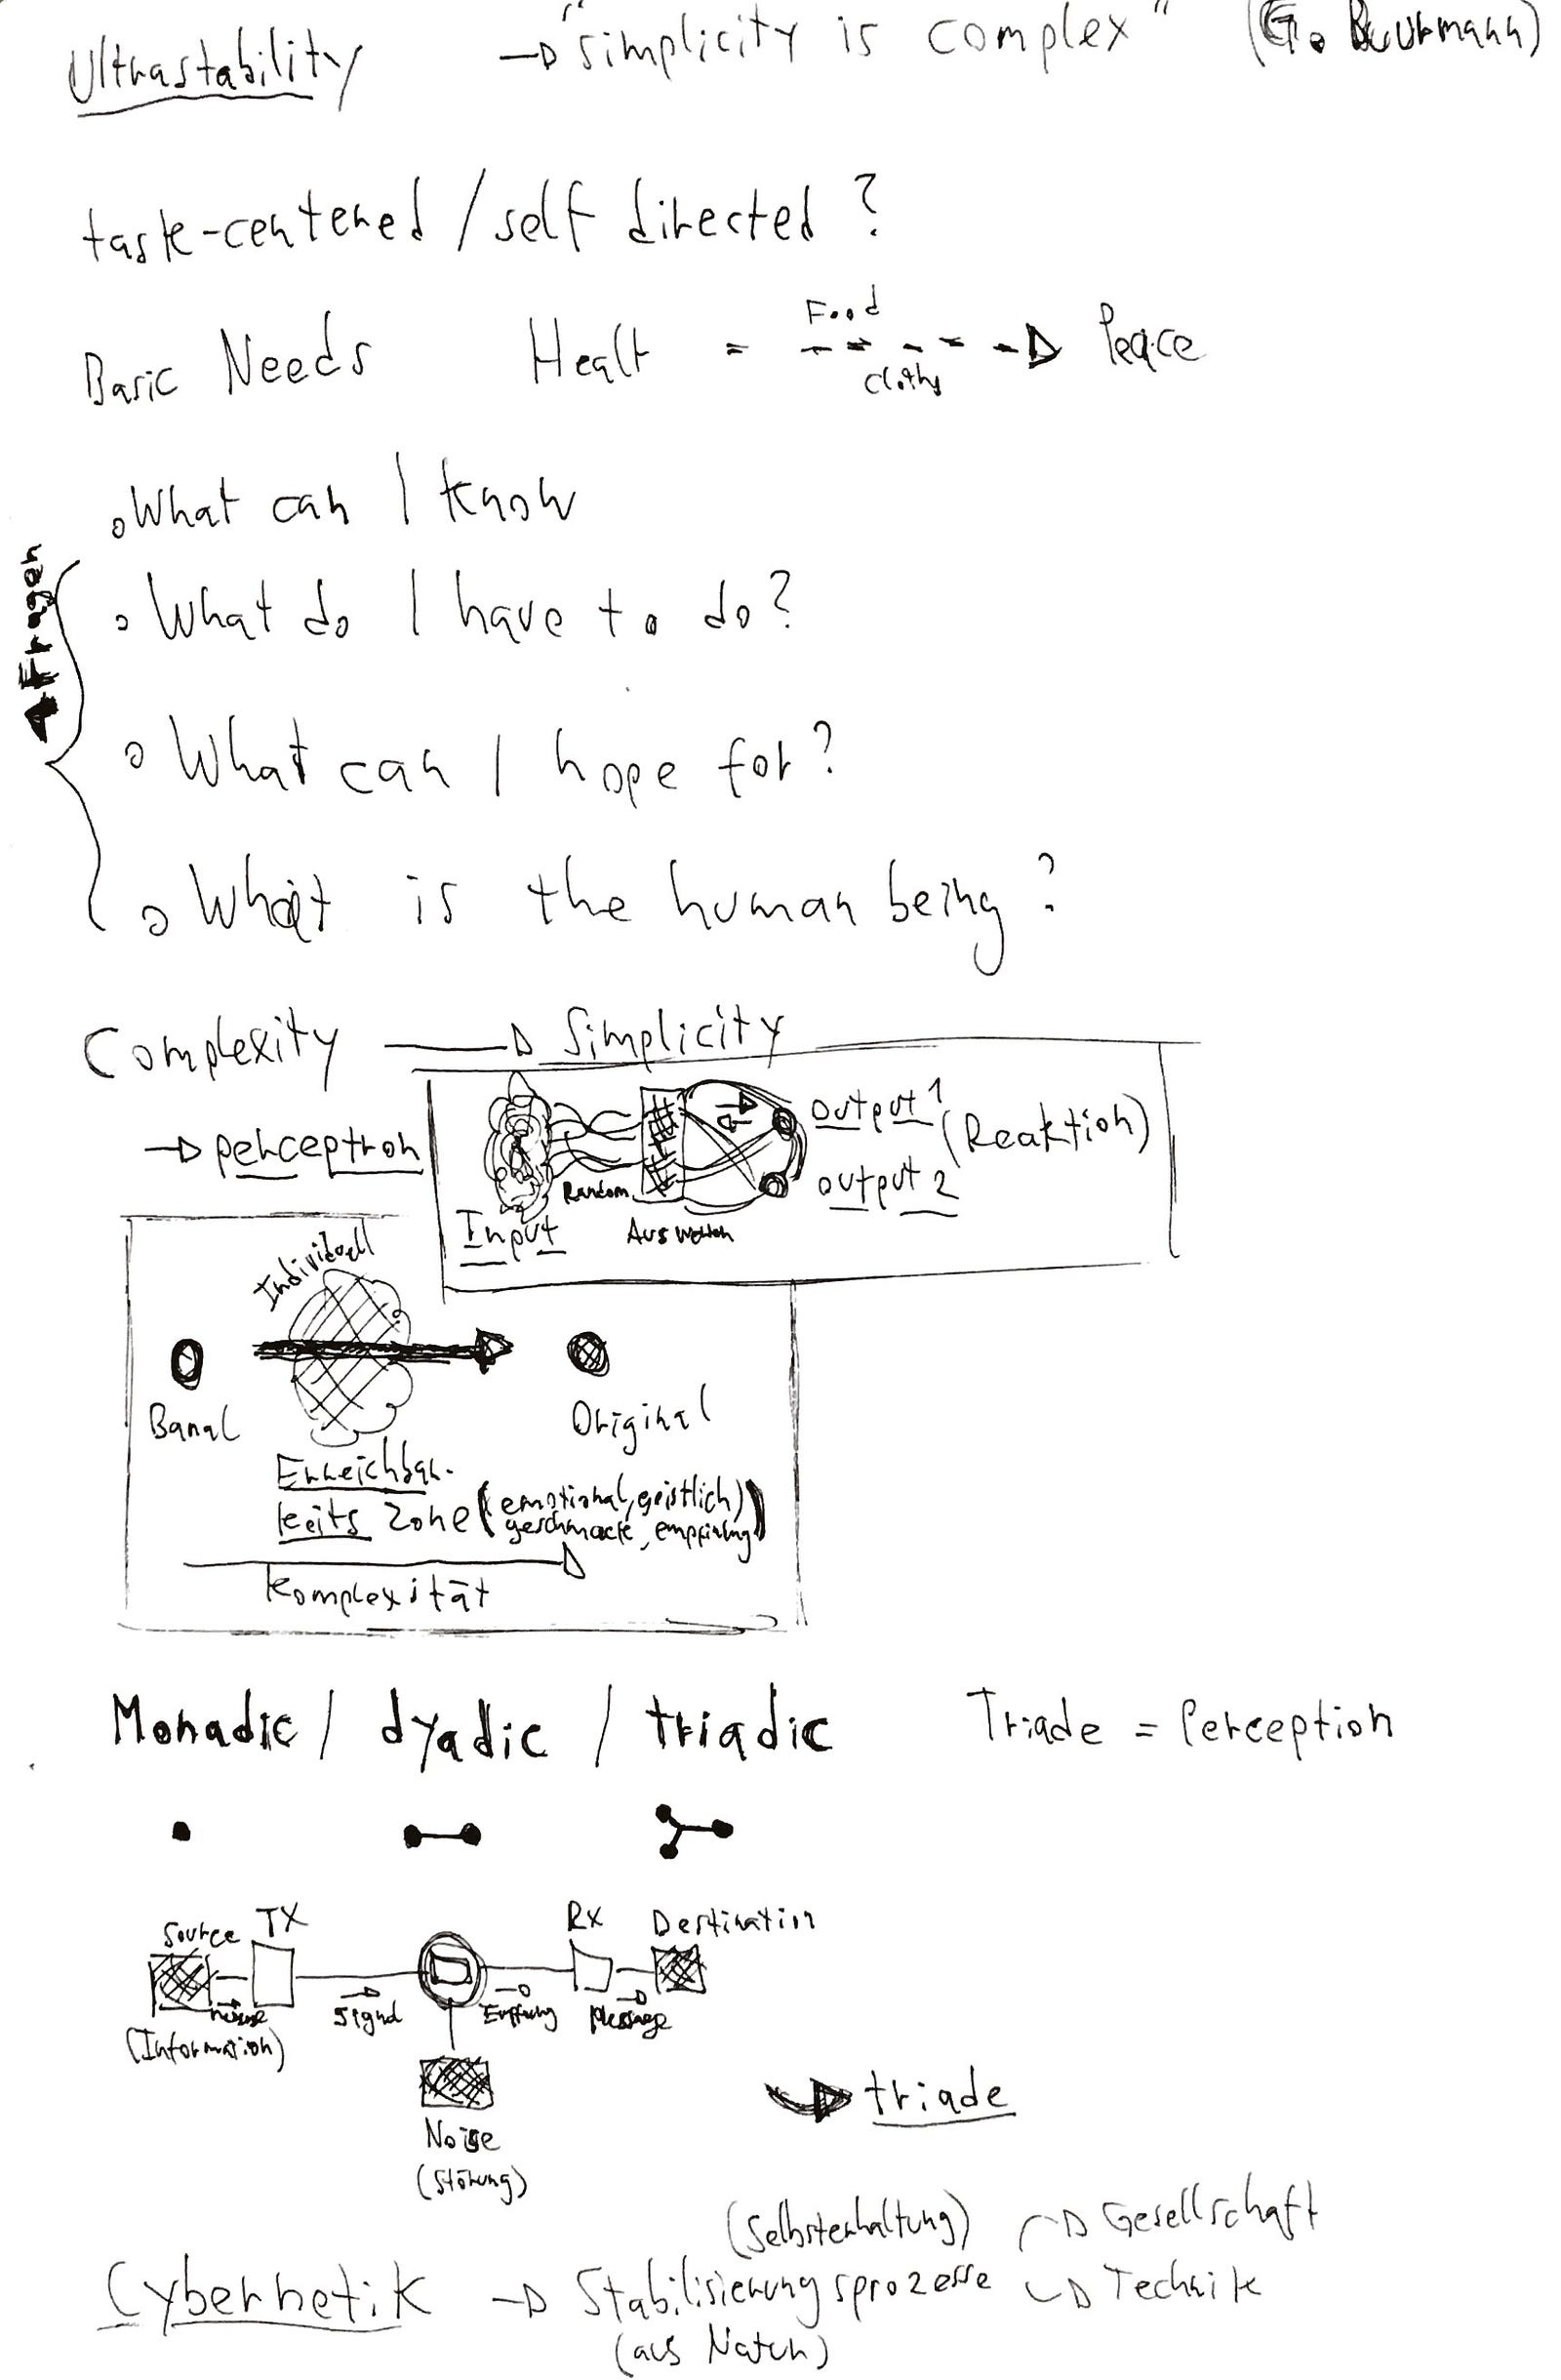 Ultrastability → "Simplicity is complex" (G.
task-centered / self directed ?
Basic Needs Healt = Food cloths → Peace
4 Fragen
What can I know
What do I have to do?
What can I hope for?
What is the human being?
Complexity → Simplicity
→ perceptron
Input
Random
output 1
(Reaktion)
output 2
Individuell
Banal
Original
Erreichbar-
keits zone (emotional, geistlich)
geschmack, empfindung)
Komplexität
Monadic / dyadic / triadic Triade = Perception
Source TX RX Destination
Signal Message
(Information)
Noise
(Störung)
→ triade
(Selbsterhaltung) → Gesellschaft
Cybernetik → Stabilisierungsprozesse → Technik
(aus Natur)